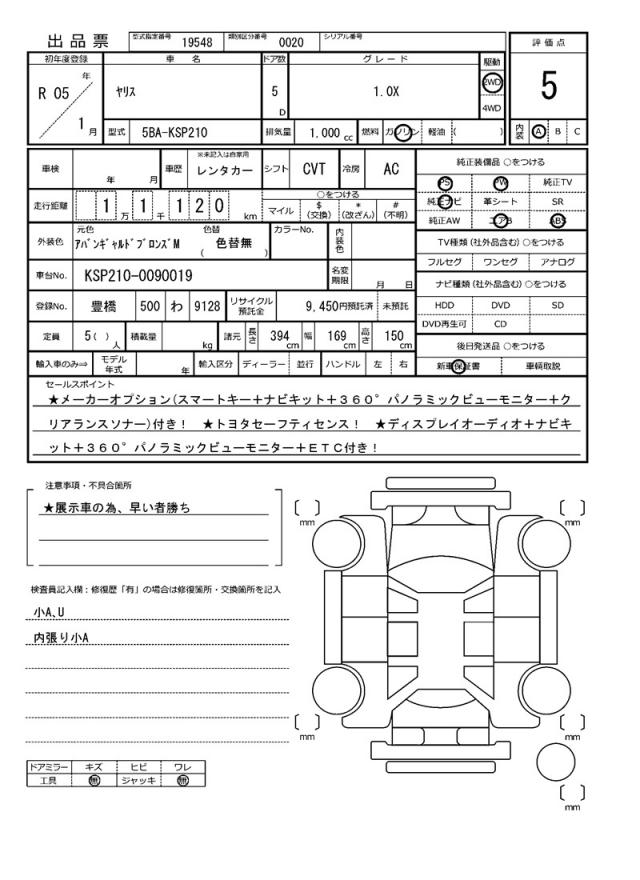 出品票 型式指定番号 19548 類別区分番号 0020 シリアル番号
評価点
5
内装 A B C
初年度登録 車名 ドア数 グレード 駆動
R 05 年 1 月 ヤリス 5 D 1.0X 2WD 4WD
型式 5BA-KSP210 排気量 1.000 cc 燃料 ガソリン 軽油 ( )
車検 年 月 車歴 ※未記入は自家用 レンタカー シフト CVT 冷房 AC
走行距離 1 万 1 千 1 2 0 km
○をつける
マイル $(交換) *(改ざん) #(不明)
外装色 元色 アバンギャルドブロンズM 色替 ( 色替無 ) カラーNo. 内装色
車台No. KSP210-0090019 名変期限 月 日
登録No. 豊橋 500 わ 9128 リサイクル預託金 9,450円預託済 未預託
定員 5( ) 人 積載量 kg 諸元 長さ 394 cm 幅 169 cm 高さ 150 cm
輸入車のみ⇒ モデル年式 年 輸入区分 ディーラー 並行 ハンドル 左 右
純正装備品 ○をつける
PS PW 純正TV
純正ナビ 革シート SR
純正AW エアB ABS
TV種類(社外品含む)○をつける
フルセグ ワンセグ アナログ
ナビ種類(社外品含む)○をつける
HDD DVD SD
DVD再生可 CD
後日発送品 ○をつける
新車保証書 車輌取説
セールスポイント
★メーカーオプション(スマートキー+ナビキット+360°パノラミックビューモニター+ク
リアランスソナー)付き! ★トヨタセーフティセンス! ★ディスプレイオーディオ+ナビキ
ット+360°パノラミックビューモニター+ETC付き!
注意事項・不具合箇所
★展示車の為、早い者勝ち
検査員記入欄:修復歴「有」の場合は修復箇所・交換箇所を記入
小A、U
内張り小A
ドアミラー キズ ヒビ ワレ
工具 無 ジャッキ 無
mm mm
mm mm
mm